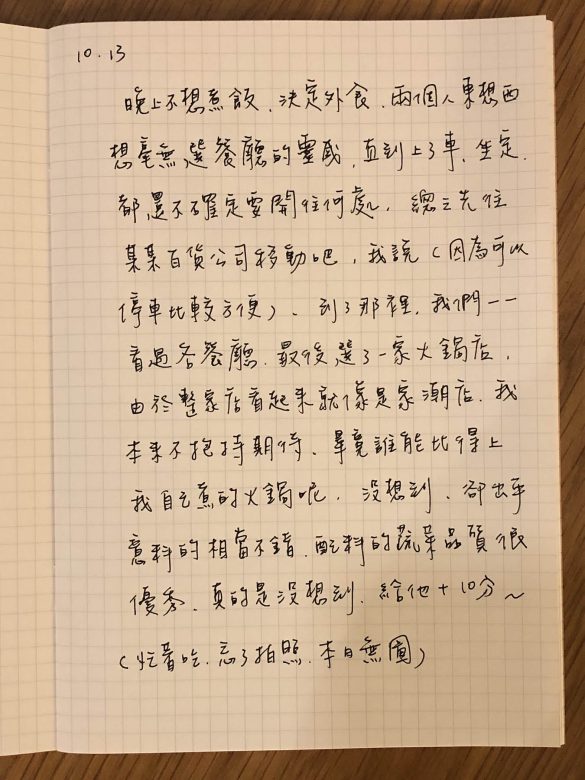 10.13
晚上不想煮飯、決定外食、兩個人東想西
想毫無選餐廳的靈感、直到上了車、坐定、
都還不確定要開往何處。總之先往
某某百貨公司移動吧、我說(因為可以
停車比較方便)、到了那裡、我們一一
看過各餐廳、最後選了一家火鍋店。
由於整家店看起來就像是家潮店、我
本來不抱持期待、畢竟誰能比得上
我自己煮的火鍋呢。沒想到、卻出乎
意料的相當不錯、配料的蔬菜品質很
優秀、真的是沒想到、給他+10分~
(忙著吃、忘了拍照、本日無圖)